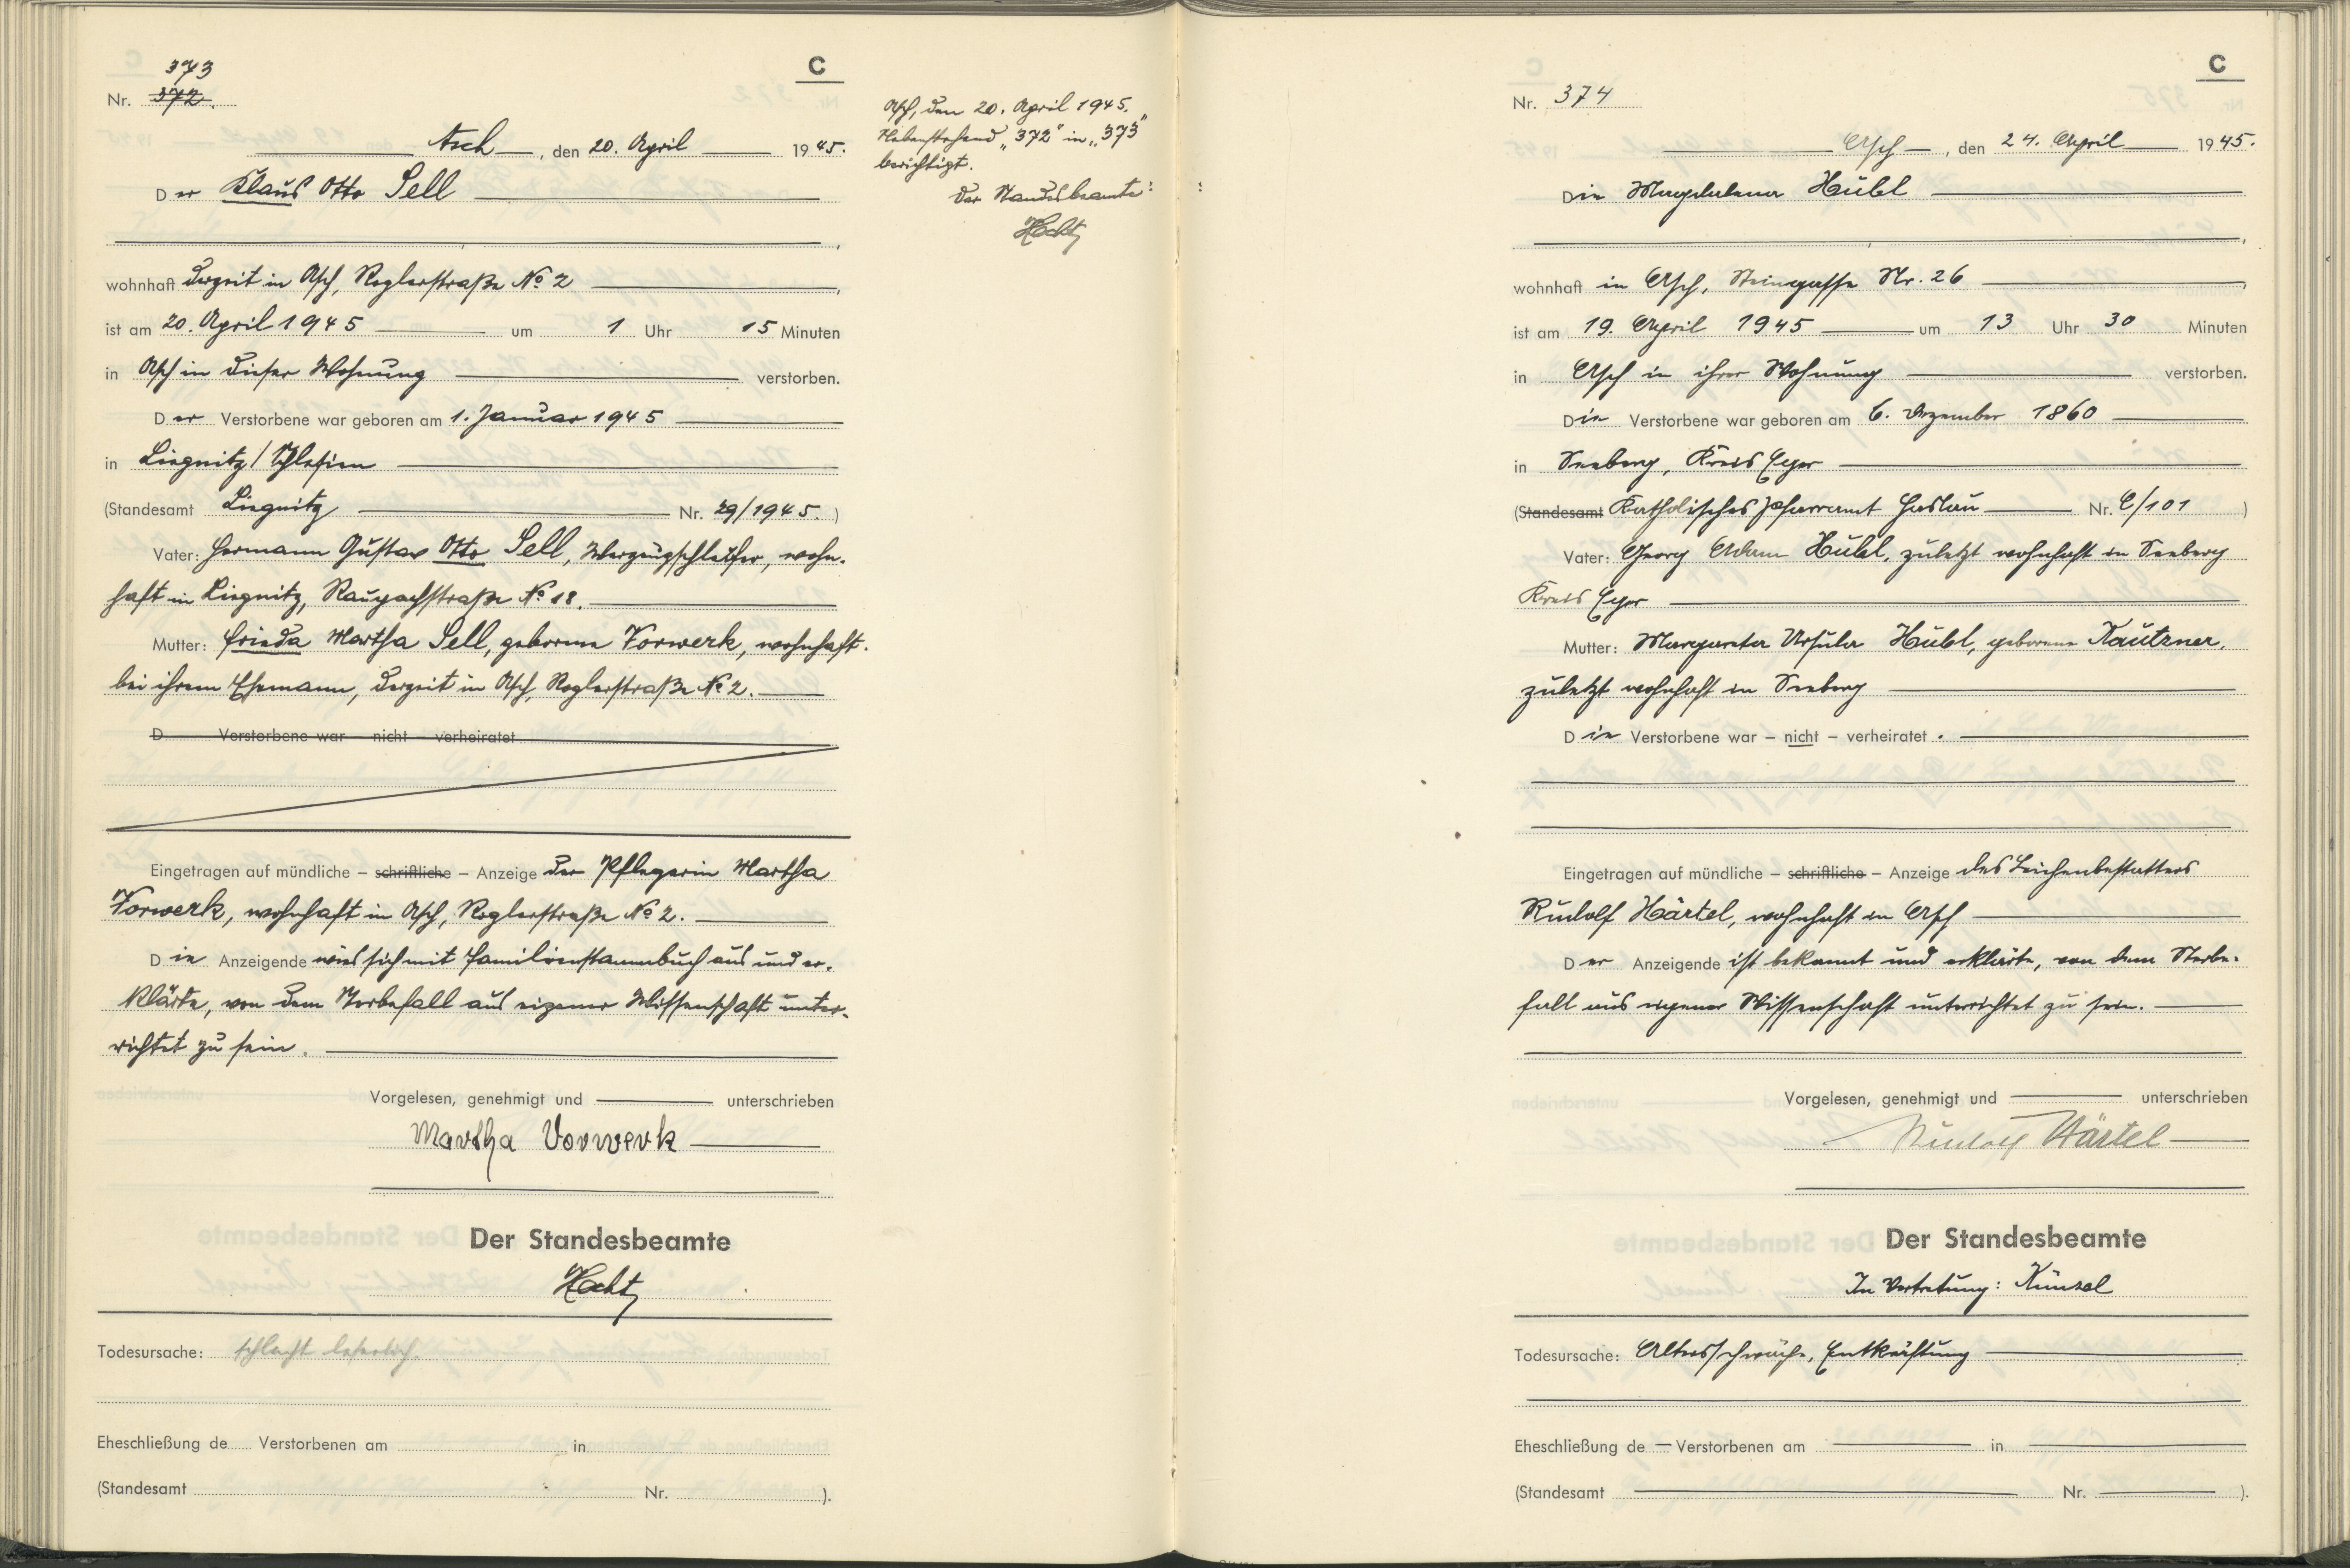 C
373
Nr. 372.
Asch, den 20. April 1945.
Der Klaus Otto Sell
wohnhaft derzeit in Asch, Roglerstraße No 2,
ist am 20. April 1945 um 1 Uhr 15 Minuten
in Asch in dieser Wohnung verstorben.
Der Verstorbene war geboren am 1. Januar 1945
in Liegnitz/Schlesien
(Standesamt Liegnitz Nr. 29/1945.)
Vater: Hermann Gustav Otto Sell, Werzeugschleifer, wohn-
haft in Liegnitz, Raupachstraße No 18.
Mutter: Frieda Martha Sell, geborene Vorwerk, wohnhaft
bei ihrem Ehemann, derzeit in Asch, Roglerstraße No 2.
D Verstorbene war – nicht – verheiratet
Eingetragen auf mündliche – schriftliche – Anzeige der Pflegerin Martha
Vorwerk, wohnhaft in Asch, Roglerstraße No 2.
Die Anzeigende wies sich mit Familienstammbuch aus und er-
klärte, von dem Sterbefall aus eigener Wissenschaft unter-
richtet zu sein.
Vorgelesen, genehmigt und unterschrieben
Martha Vorwerk
Der Standesbeamte
Hecht
Todesursache: schlecht leserlich.
Eheschließung de Verstorbenen am in
(Standesamt Nr. ).
Asch, den 20. April 1945.
Nebenstehend „372" in „373"
berichtigt.
Der Standesbeamte:
Hecht
C
Nr. 374
Asch, den 24. April 1945.
Die Magdalena Hübl
wohnhaft in Asch, Steingasse Nr. 26
ist am 19. April 1945 um 13 Uhr 30 Minuten
in Asch in ihrer Wohnung verstorben.
Die Verstorbene war geboren am 6. Dezember 1860
in Seeberg, Kreis Eger
(Standesamt Katholisches Pfarramt Haslau Nr. C/101)
Vater: Georg Adam Hübl, zuletzt wohnhaft in Seeberg
Kreis Eger
Mutter: Margareta Ursula Hübl, geborene Kautzner,
zuletzt wohnhaft in Seeberg
Die Verstorbene war – nicht – verheiratet.
Eingetragen auf mündliche – schriftliche – Anzeige des Leichenbestatters
Rudolf Härtel, wohnhaft in Asch
Der Anzeigende ist bekannt und erklärte, von dem Sterbe-
fall aus eigener Wissenschaft unterrichtet zu sein.
Vorgelesen, genehmigt und unterschrieben
Rudolf Härtel
Der Standesbeamte
In Vertretung: Künzel
Todesursache: Altersschwäche, Entkräftung
Eheschließung de Verstorbenen am in
(Standesamt Nr. ).